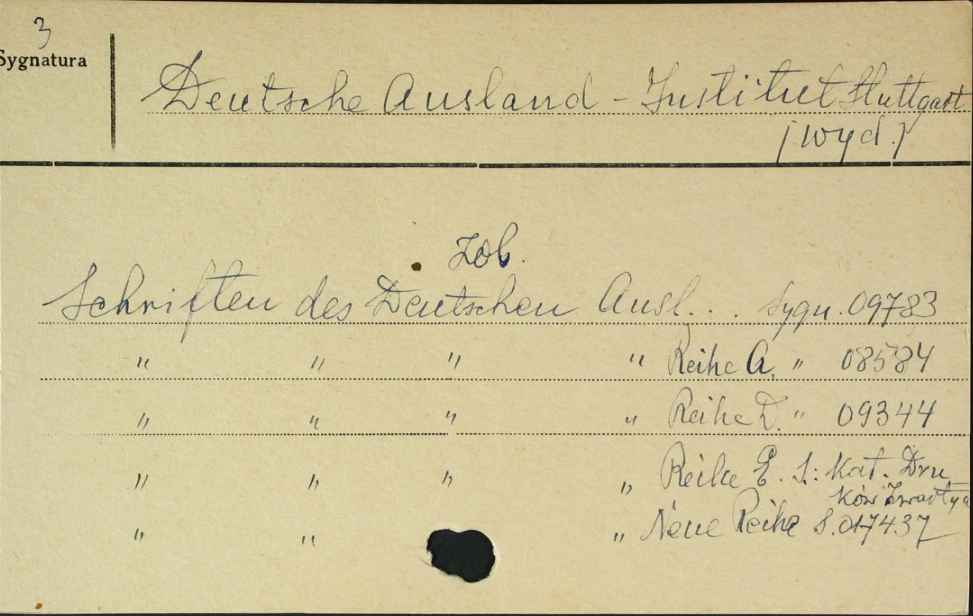 3
Sygnatura
Deutsche Ausland - Institut Stuttgart
[wyd.]
Zob.
Schriften des Deutschen Ausl... Sygn. 09783
" " " " Reihe A. " 08584
" " " " Reihe D. " 09344
" " " " Reihe E. S: Kat. Dru_
ków Zwartyc
" " " Neue Reihe S. 017437